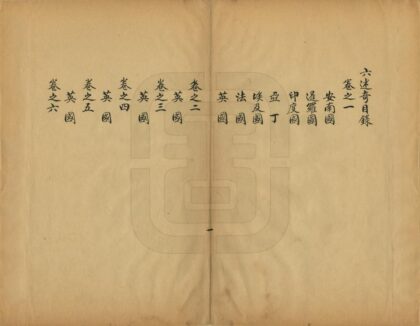 六述奇目錄
卷之一
安南國
暹羅國
印度國
亞丁
埃及國
法國
英國
卷之二
英國
卷之三
英國
卷之四
英國
卷之五
英國
卷之六
一